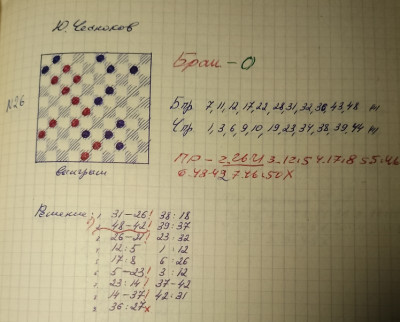 Ю. Чесноков
Брак - О
№26
Б пр 7, 11, 12, 17, 22, 28, 31, 32, 36, 43, 48
Ч пр 1, 3, 6, 9, 10, 19, 23, 34, 38, 39, 44
ПР - 2. 26-21 3. 12:5 4. 17:8 5
6. 48-43 7. 46:50 X
выигрыш
Решение:
31-26! 38:18
48-42! 39:37
26-21! 23:32
12:5 1:12
17:8 6:26
5-23! 3:12
23:14! 37-42
14-37! 42:31
36:27x